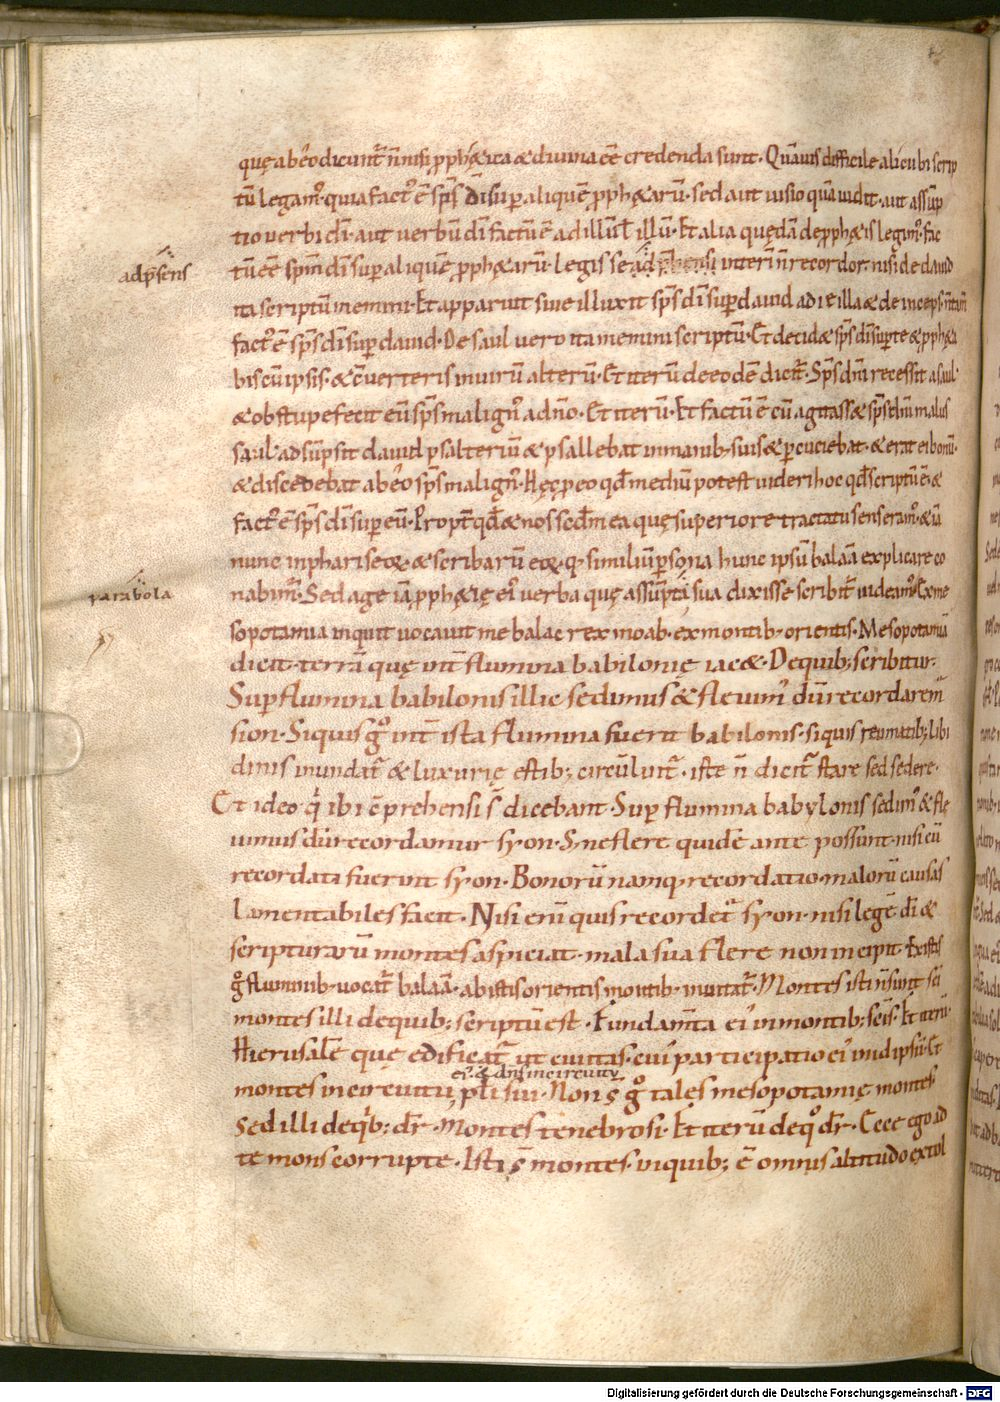 quę ab eo dicunt᷑ n̄ nisi ꝓph&ica & diuina eē credenda sunt· Quāuis difficile alicubi scrip
tū legam᷒· quia fact᷒ ē sp̄s dī sup̲ aliquē ꝓph&arū· sed aut uisio quā uidit· aut assūp
tio uerbi dī· aut uerbū dī factū ē ad illū t̄ illū· Et alia quędā de ꝓph&is legim᷒· fac
tū eē sp̄m dī sup̲ aliquē ꝓph&arū· legisse interī n̄ recordor· nisi de dauid
adp̄sens
ita scriptū memini· Et apparuit siue illuxit sp̄s dī sup̲ dauid a die illa & deinceps· n̄ tam̄
fact᷒ ē sp̄s dī sup̲ dauid· De saul uero ita memini scriptū· Et decid& sp̄s dī sup̲ te & ꝓph&a
bis cū ipsis· & cūerteris in uirū alterū· Et iterū de eodē dicit᷑· Sp̄s dn̄i recessit a saul·
& obstupefecit eū sp̄s malign᷒ a dn̄o· Et iterū· Et factū ē cū agitass& sp̄s malus
saul· adsūpsit dauid psalteriū & psallebat in manib; suis & p̲cutiebat· & erat ei bonū·
& discedebat ab eo sp̄s malign᷒· Hęc ꝓ eo qd̄ mediū potest uideri hoc qd̄ scriptū ē· &
fact᷒ ē sp̄s dī sup̲ eū· Propt̲ qd̄ & nos scdm̄ ea quę superiore tractatu senseram᷒· & iā
nunc in phariseoꝝ & scribarū eoꝝ q; similiū p̲sona hunc ipsū balaā explicare co
nabim᷒· Sed age iā ꝓph&ię ei᷒ uerba quę assūpta sua dixisse scribit᷑ uideam᷒· Ex me
parabola
sopotamia inquit uocauit me balac rex moab· ex montib; orientis· Mesopotamiā
dicit· terrā quę int̲ flumina babilonię iac&· De quib; scribitur·
Sup̲ flumina babilonis illic sedimus & fleuim᷒ dū recordarem᷒
sion· Siquis g̊ int̲ ista flumina fuerit babilonis· siquis reumatib; libi
dinis inundat᷑ & luxurię estib; circūluit᷑· iste n̄ dicit᷑ stare sed sedere·
Et ideo q᷒ ibi cp̄rehensi s̄ dicebant· Sup̲ flumina babylonis sedim᷒ & fle
uimus dū recordamur syon· Syne flere quidē ante possunt· nisi cū
recordati fuerint syon· Bonorū namq; recordatio· malorū causas
lamentabiles facit· Nisi enī quis recordet᷑ syon· nisi legē dī &
scripturarū montes aspiciat· mala sua flere non incipit· Existis
g̊ fluminib; uocat᷑ balaā· ab istis orientis montib; inuitat᷑· Montes isti n̄ sunt sc̄i
montes illi de quib; scriptū est· Fundam̄ta ei᷒ in montib; sc̄is· Et iterū·
Hierusalē quę edificat᷑ ut ciuitas· cui᷒ participatio ei᷒ in idipsū· Et
ei᷒ & dn̄s in circuitu
montes in circuitu pl̄i sui· Non s̄ g̊ tales mesopotamię montes·
Sed illi de q̇b; dr̄· Montes tenebrosi· Et iterū de quo dr̄· Ecce ego ad
te mons corrupte· Isti s̄ montes· in quib; ē omnis altitudo extol
Digitalisierung gefördert durch die Deutsche Forschungsgemeinschaft - DFG